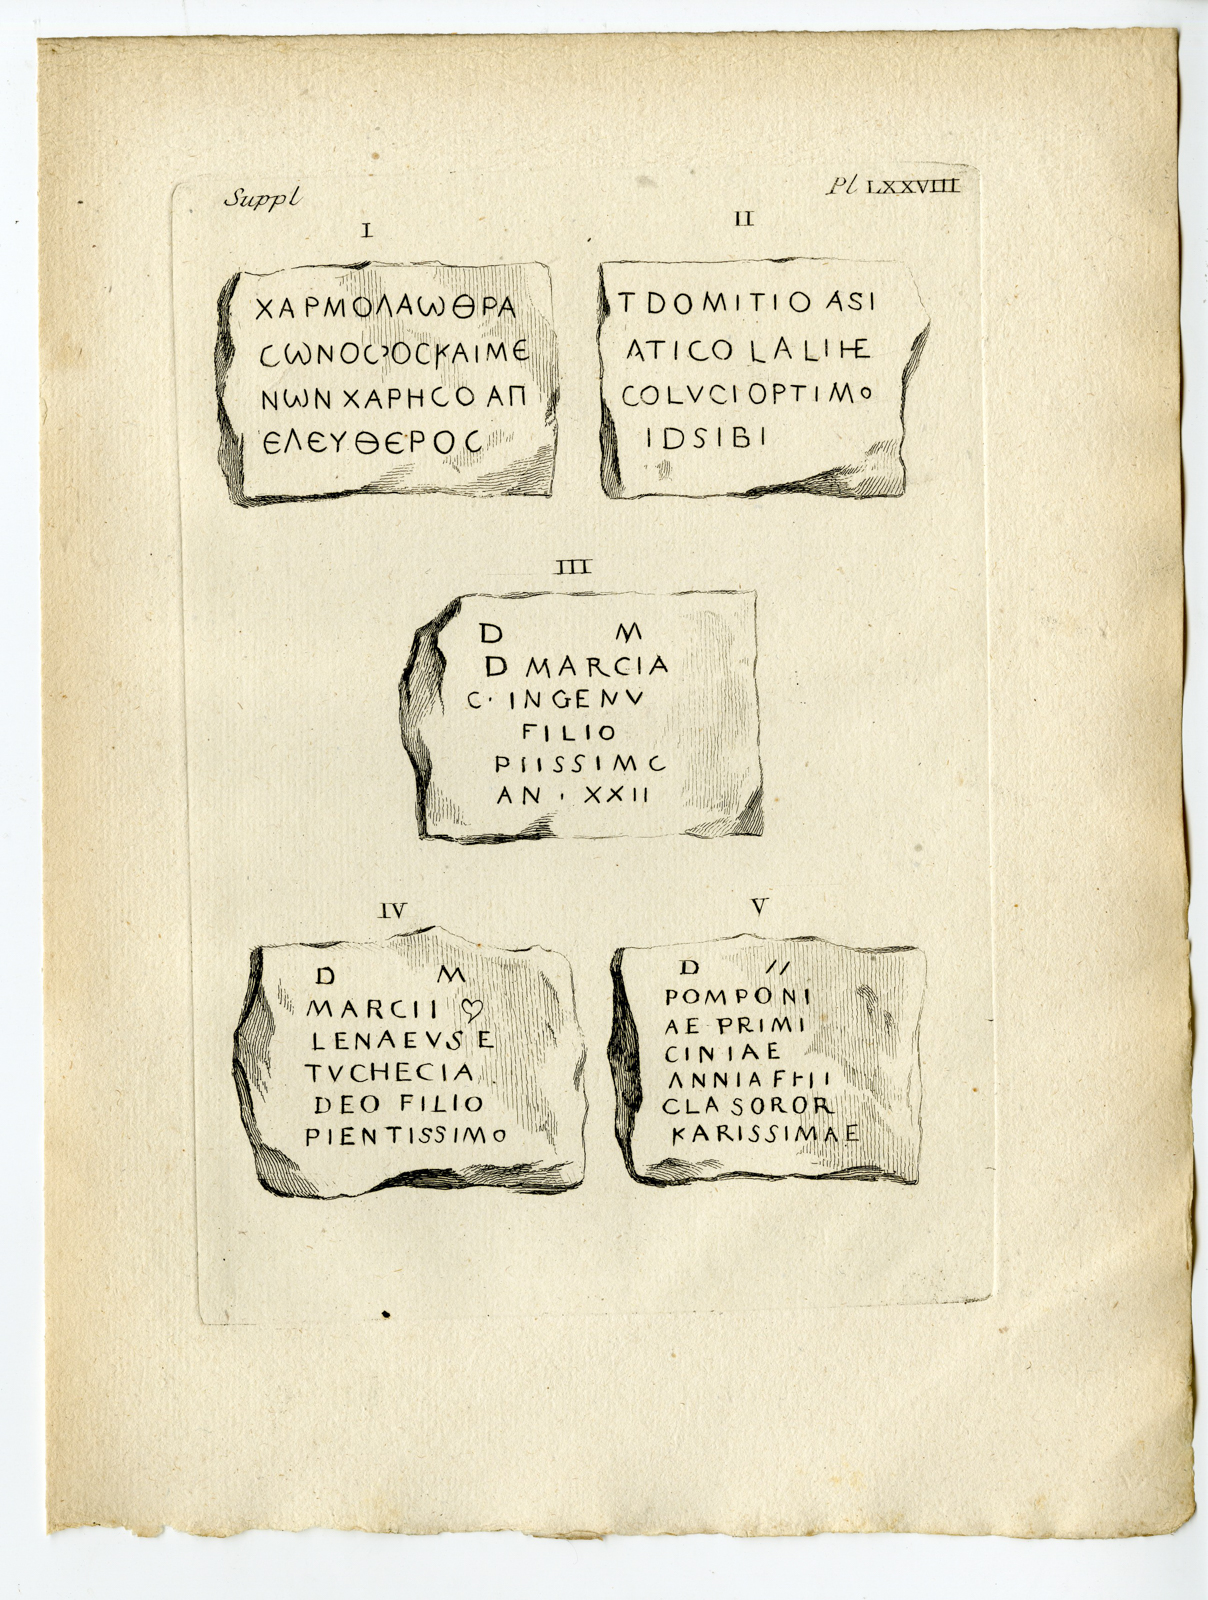 Suppl
Pl LXXVIII
I
ΧΑΡΜΟΛΑω ΘΡΑ
CωΝΟCϽΟCΚΑΙΜΕ
ΝωΝ ΧΑΡΗCΟ ΑΠ
ΕΛΕΥΘΕΡΟC
II
T DOMITIO ASI
ATICO LALIHE
COLVCI OPTIMO
IDSIBI
III
D M
D MARCIA
C· INGENV
FILIO
PIISSIMC
AN · XXII
IV
D M
MARCII ❦
LENAEVS E
TVCHECIA
DEO FILIO
PIENTISSIMO
V
D //
POMPONI
AE PRIMI
CINIAE
ANNIA FHI
CLA SOROR
KARISSIMAE